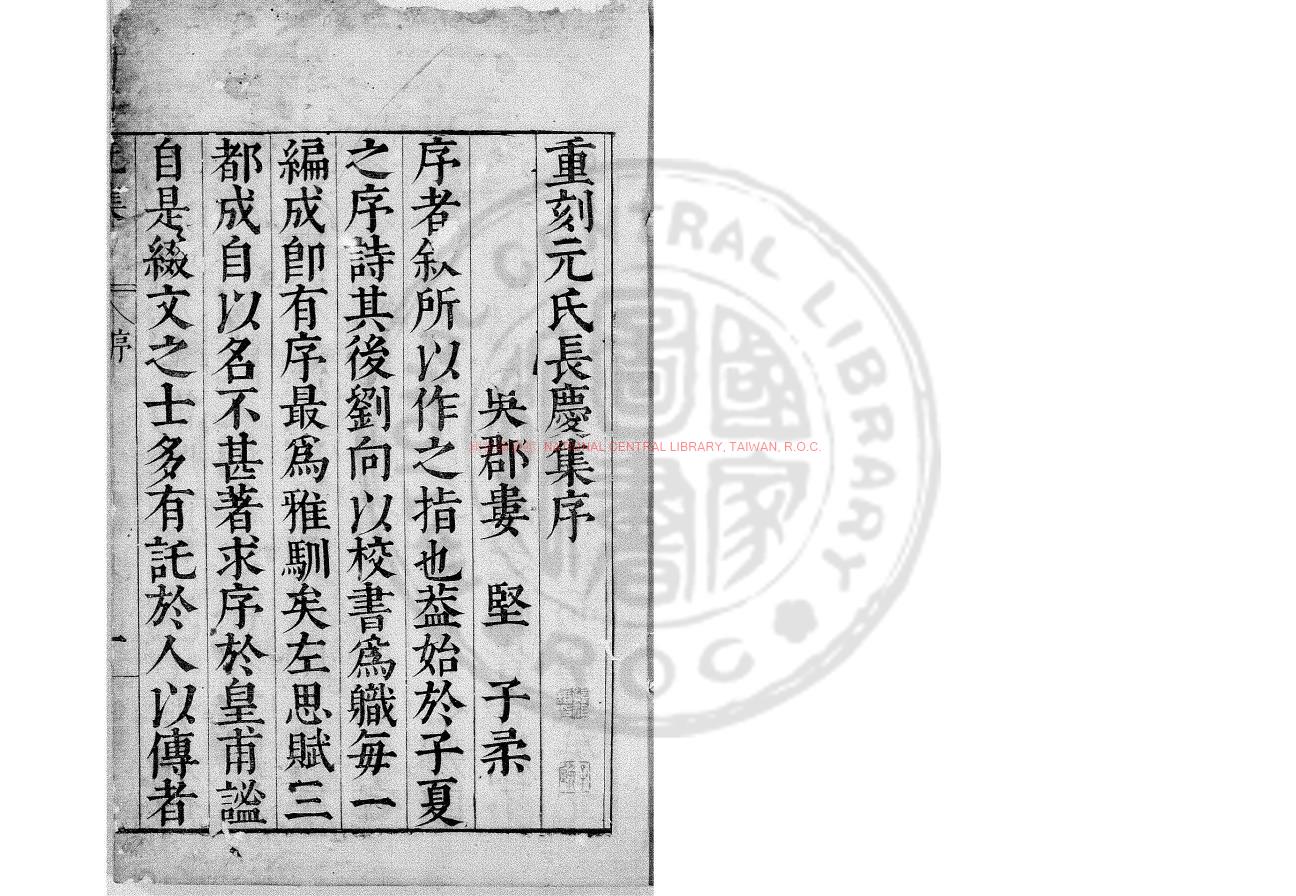 重刻元氏長慶集序
吳郡婁 堅 子柔
序者叙所以作之指也葢始於子夏
之序詩其後劉向以校書爲軄每一
編成卽有序最爲雅馴矣左思賦三
都成自以名不甚著求序於皇甫謐
自是綴文之士多有託於人以傳者
序
一
NATIONAL CENTRAL LIBRARY, TAIWAN, R.O.C.
CENTRAL LIBRARY
ROC